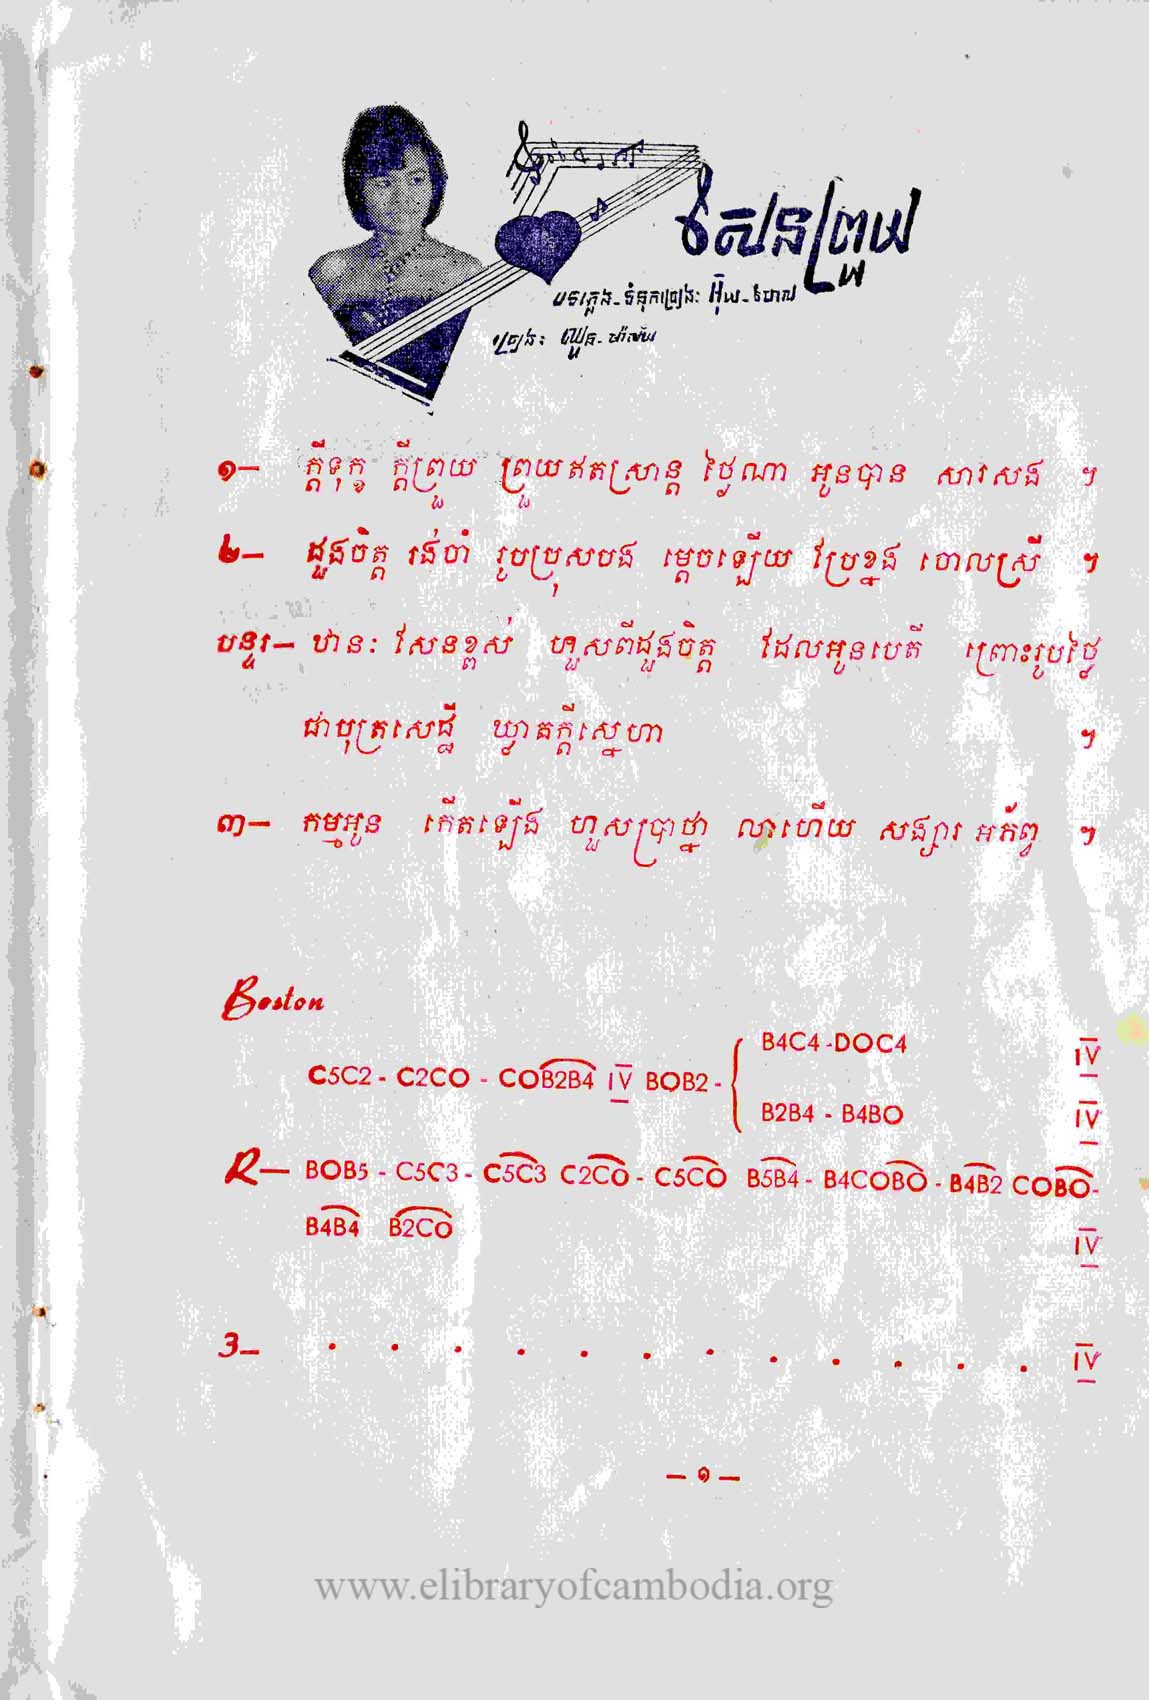 សែនព្រួយ
បទភ្លេង - ទំនុកច្រៀង: អ៊ុយ - វិហាល
ច្រៀង: ឈួន - ម៉ាល័យ
១— ក្តីទុក្ខ ក្តីព្រួយ ព្រួយឥតស្រាន្ត ថ្ងៃណា អូនបាន សារសង ។
២— ដួងចិត្ត រង់ចាំ រូបប្រុសបង ម្តេចឡើយ បែរខ្នង ចោលស្រី ។
បន្ទរ— ឋានៈ សែនខ្ពស់ ហួសពីដួងចិត្ត ដែលអូនបេតី ព្រោះរូបថ្លៃ
ជាបុត្រសេដ្ឋី ឃ្លាតក្តីស្នេហា ។
៣— កម្មអូន កើតឡើង ហួសប្រាថ្នា លាហើយ សង្សារ អភ័ព្វ ។
Boston
B4C4 - DOC4 IV
C5C2 - C2CO - COB2B4 IV BOB2 -
B2B4 - B4BO IV
R— BOB5 - C5C3 - C5C3 C2CO - C5CO B5B4 - B4COBO - B4B2 COBO -
B4B4 B2CO IV
3— . . . . . . . . . . . . IV
— ១ —
www.elibraryofcambodia.org